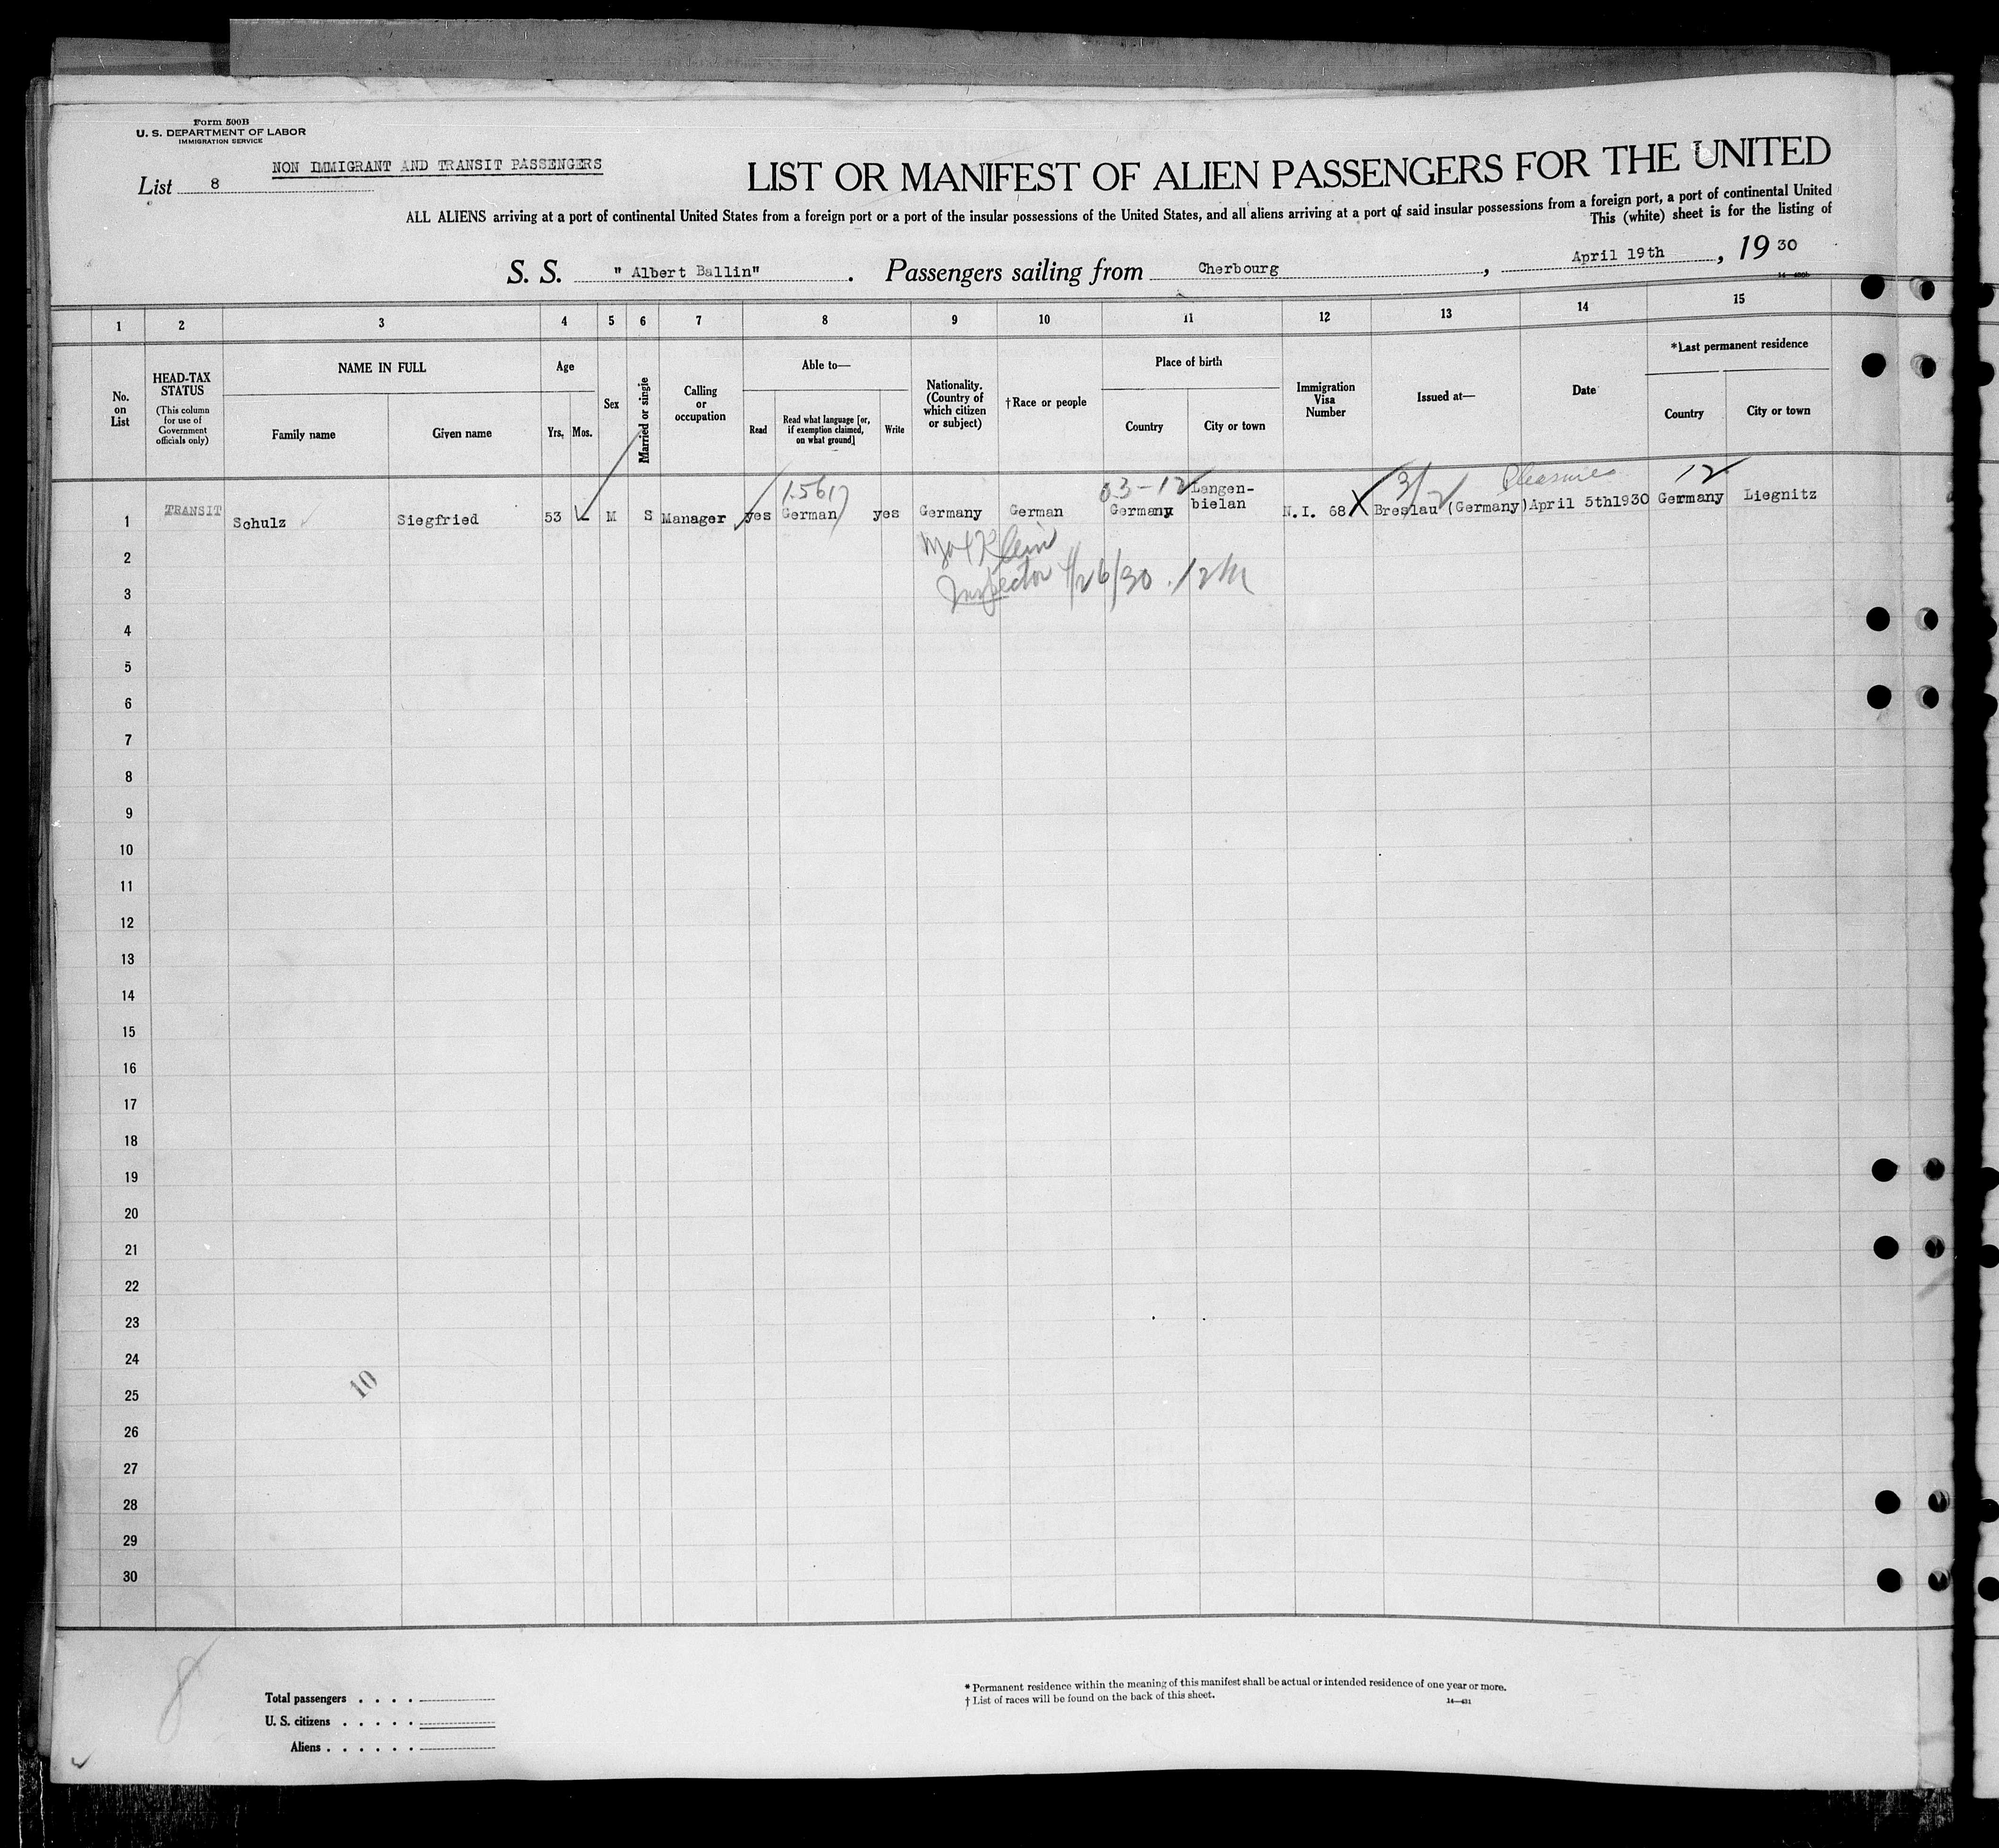 Form 500B
U. S. DEPARTMENT OF LABOR
IMMIGRATION SERVICE
NON IMMIGRANT AND TRANSIT PASSENGERS
List 8
LIST OR MANIFEST OF ALIEN PASSENGERS FOR THE UNITED
ALL ALIENS arriving at a port of continental United States from a foreign port or a port of the insular possessions of the United States, and all aliens arriving at a port of said insular possessions from a foreign port, a port of continental United
This (white) sheet is for the listing of
S. S. " Albert Ballin" . Passengers sailing from Cherbourg , April 19th , 19 30
1 2 3 4 5 6 7 8 9 10 11 12 13 14 15
No. on List
HEAD-TAX STATUS
(This column for use of Government officials only)
NAME IN FULL
Family name
Given name
Age
Yrs. Mos.
Sex
Married or single
Calling or occupation
Able to—
Read
Read what language [or, if exemption claimed, on what ground]
Write
Nationality. (Country of which citizen or subject)
†Race or people
Place of birth
Country
City or town
Immigration Visa Number
Issued at—
Date
*Last permanent residence
Country
City or town
Pleasure
12
03-12
1 TRANSIT Schulz Siegfried 53 M S Manager yes German yes Germany German Germany Langen-bielan N.I. 68 Breslau (Germany) April 5th1930 Germany Liegnitz
Klein
Inspector 4/26/30
2
3
4
5
6
7
8
9
10
11
12
13
14
15
16
17
18
19
20
21
22
23
24
10
25
26
27
28
29
30
8
Total passengers . . . .
U. S. citizens . . . . .
Aliens . . . . . .
* Permanent residence within the meaning of this manifest shall be actual or intended residence of one year or more.
† List of races will be found on the back of this sheet.